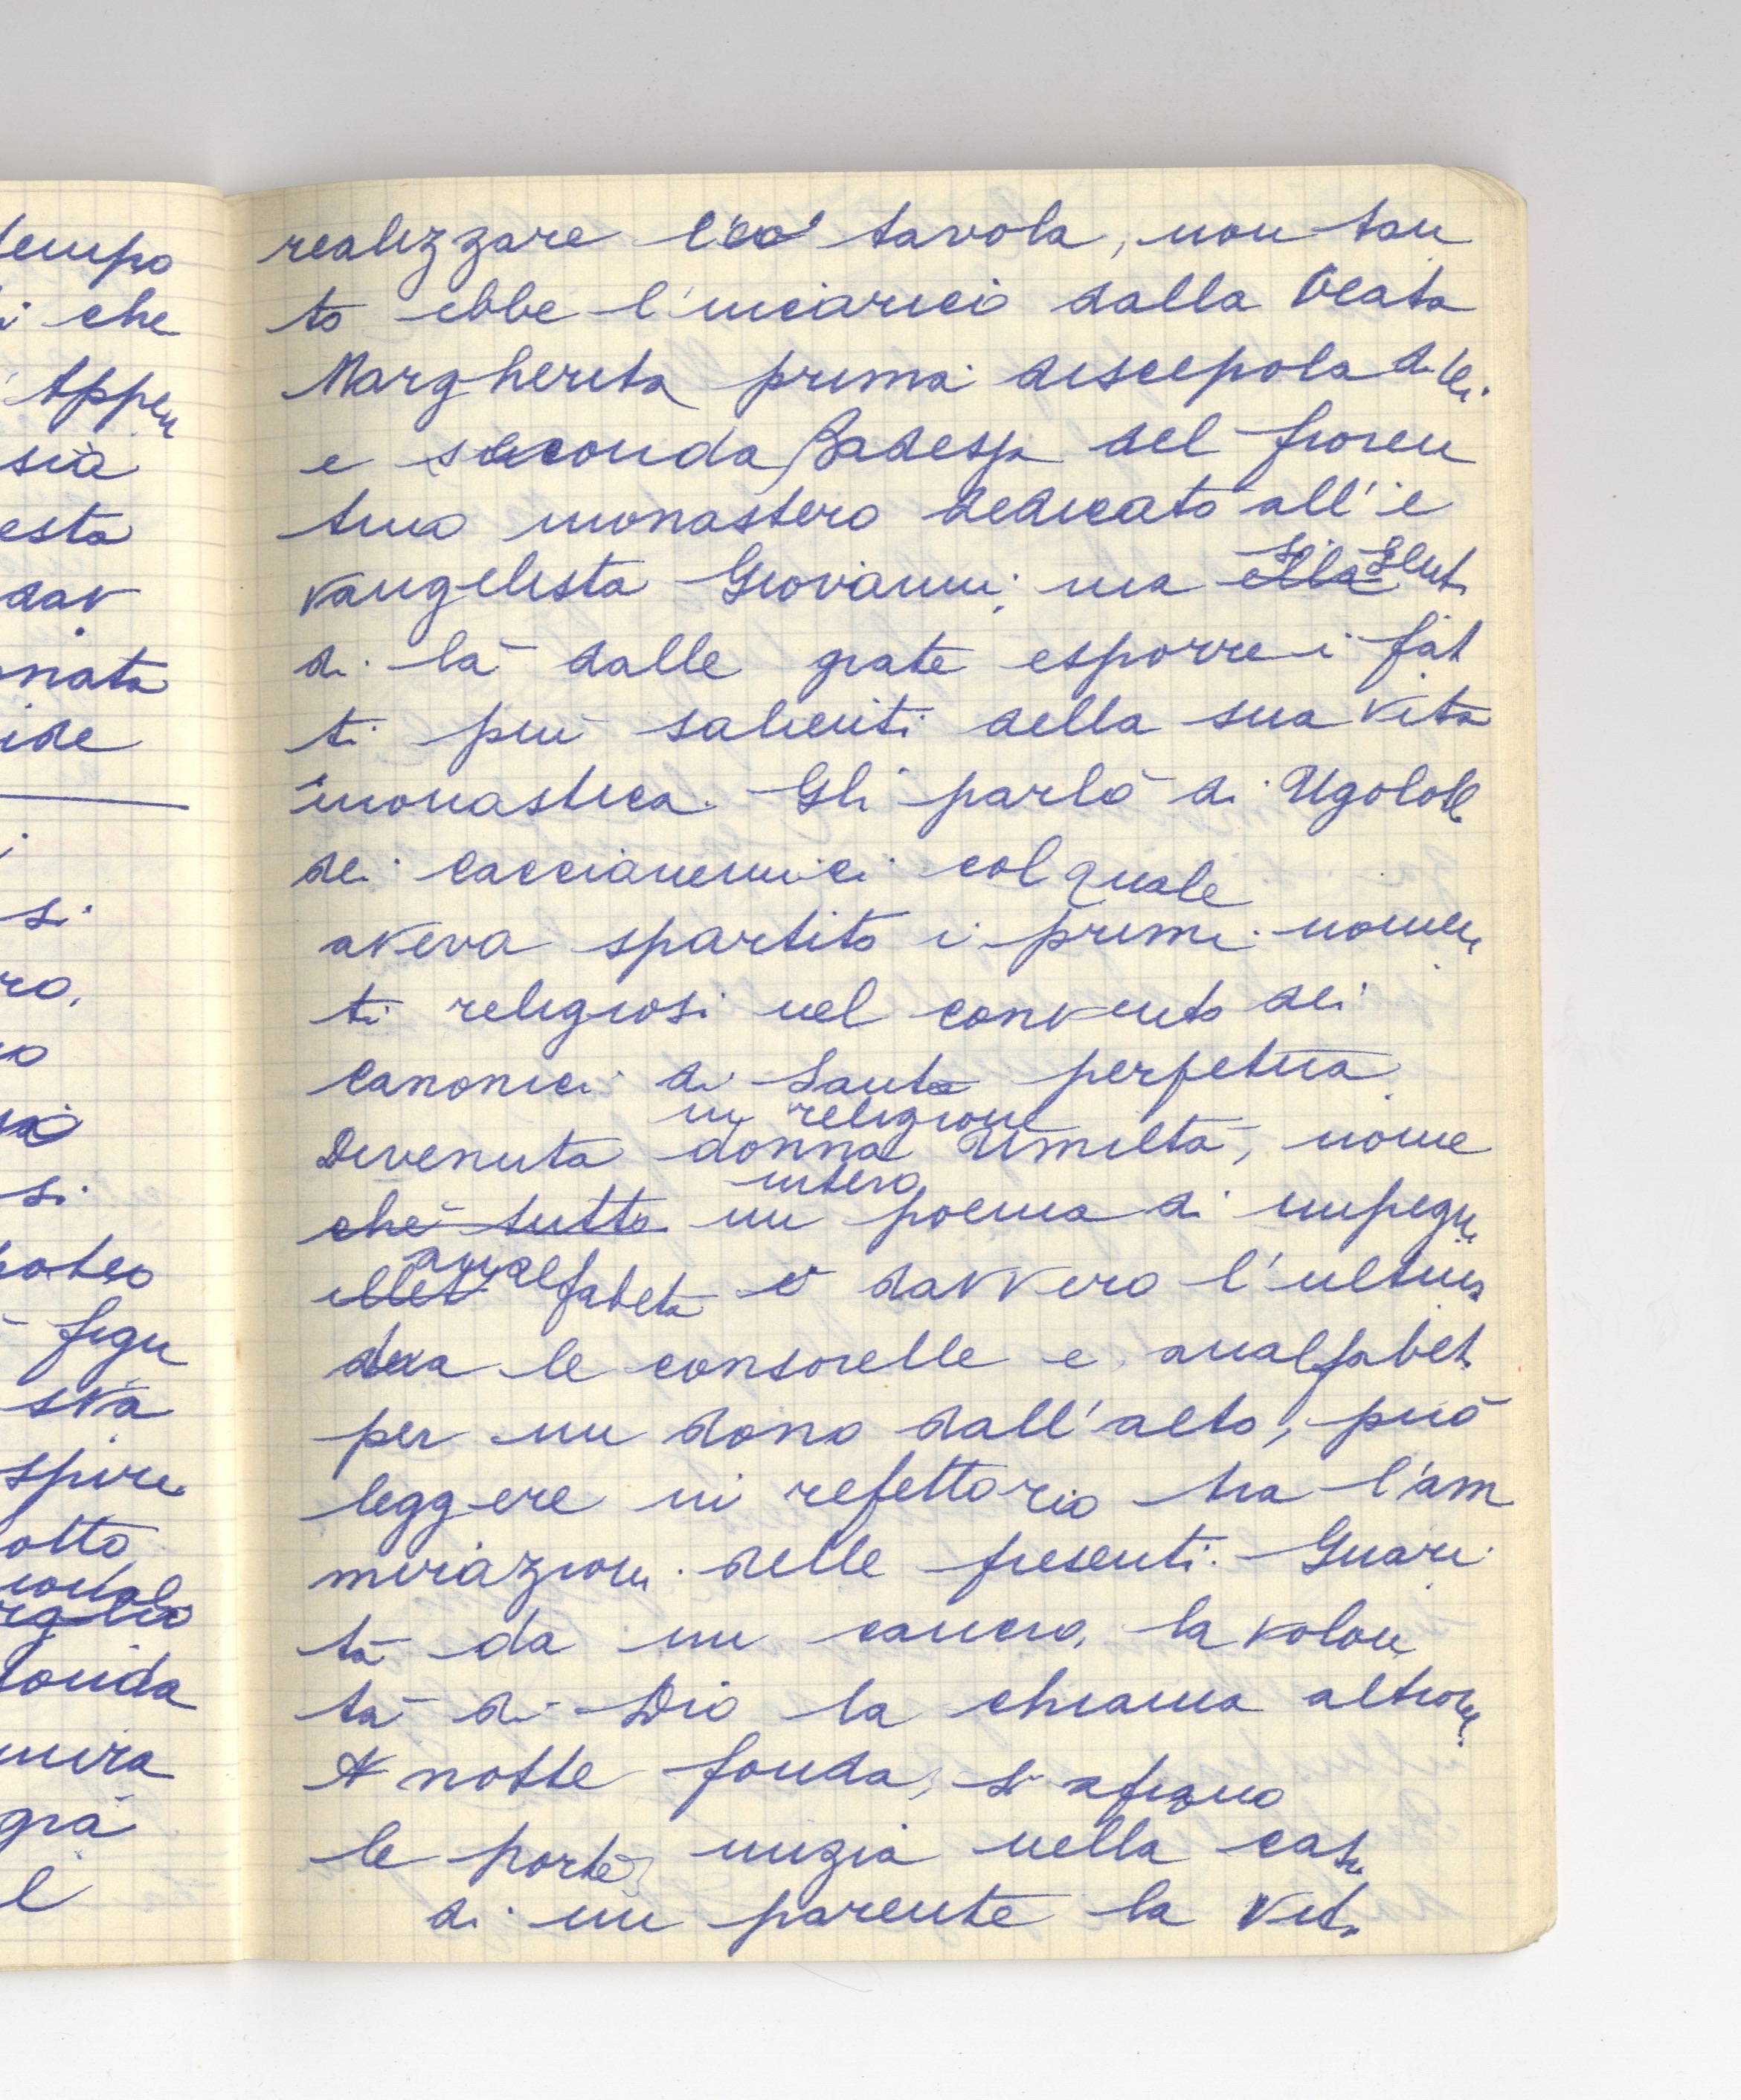 tempo
i che
Appen
sia
esta
dav
nata
ide
i
si
ro,
si
figu
sva
spire
otto
onda
mira
già
realizzare tavola, non tan
to ebbe l'incarico dalla Beata
Margherita prima discepola di lei
e seconda Badessa del fioren
tino monastero dedicato all'e
vangelista Giovanni; ma ella Sentì
di là dalle grate esporre i fat
ti più salienti della sua vita
monastica. Gli parlò di Ugolotto
dei Caccianemici col quale
aveva spartito i primi momen
ti religiosi nel convento dei
Canonici di Santa perpetua
in religione
Divenuta donna Umiltà, nome
intero
che tutto un poema di impegni
analfabeta è davvero l'ultima
tra le consorelle e, analfabeta
per un dono dall'alto, può
leggere in refettorio tra l'am
mirazione delle presenti. Guari
ta da un cancro, la volon
tà di Dio la chiama altrove
A notte fonda, si aprono
le porte, inizia nella casa
di un parente la vita